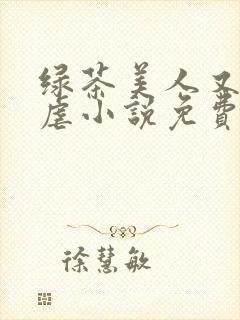 绿茶美人又
虐小說免費
徐慧敏